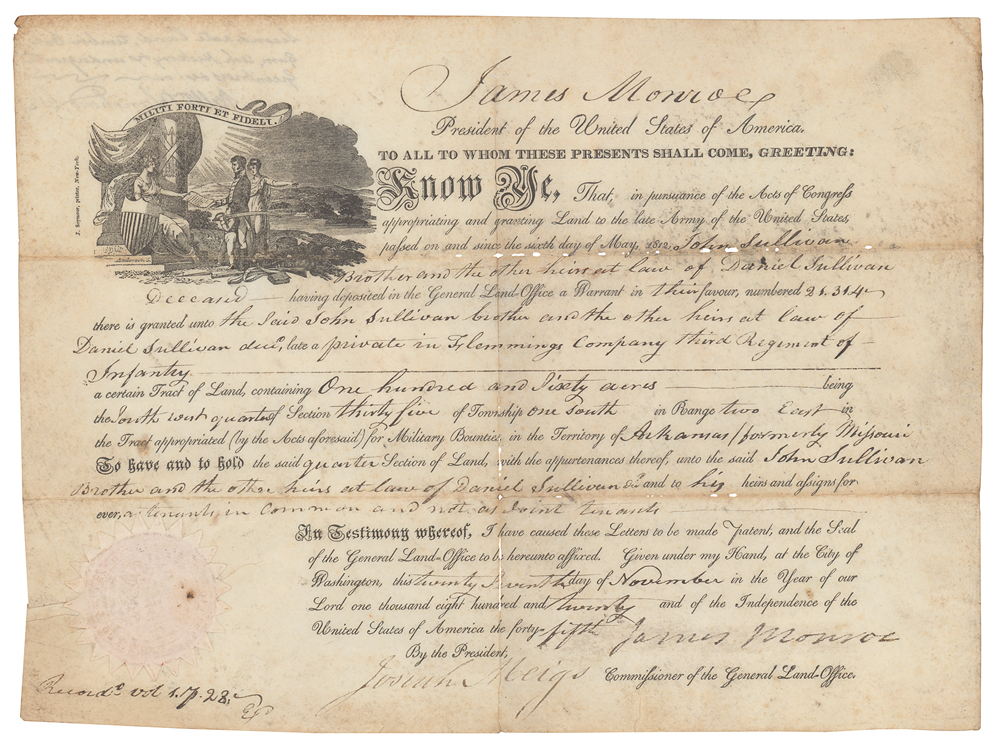 James Monroe
President of the United States of America,
MILITI FORTI ET FIDELI.
TO ALL TO WHOM THESE PRESENTS SHALL COME, GREETING:
J. Seymour, printer, New-York.
Know Ye, That, in pursuance of the Acts of Congress
appropriating and granting Land to the late Army of the United States,
passed on and since the sixth day of May, 1812, John Sullivan
Brother and the other heirs at law of Daniel Sullivan
Deceased having deposited in the General Land-Office a Warrant in their favour, numbered 21.314
there is granted unto the said John Sullivan brother and the other heirs at law of
Daniel Sullivan decd, late a private in Flemmings Company third Regiment of
Infantry
a certain Tract of Land, containing One hundred and Sixty acres being
the South west quarter of Section thirty five of Township one South in Range two East in
the Tract appropriated (by the Acts aforesaid) for Military Bounties, in the Territory of Arkansas / formerly Missouri
To have and to hold the said quarter Section of Land, with the appurtenances thereof, unto the said John Sullivan
Brother and the other heirs at law of Daniel Sullivan and to his heirs and assigns for
ever, as tenants in Common and not as Joint tenants
In Testimony whereof, I have caused these Letters to be made Patent, and the Seal
of the General Land-Office to be hereunto affixed. Given under my Hand, at the City of
Washington, this twenty Seventh day of November in the Year of our
Lord one thousand eight hundred and twenty and of the Independence of the
United States of America the forty-fifth James Monroe
By the President,
Josiah Meigs Commissioner of the General Land-Office.
Recordd vol 1. p. 28.